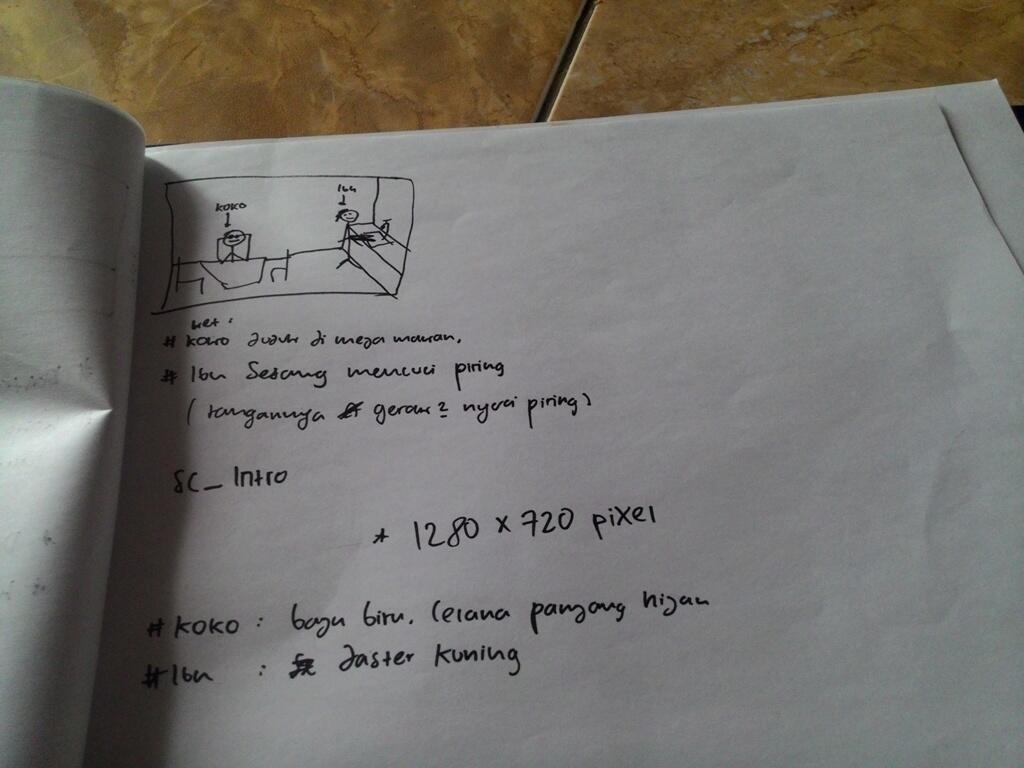 Koko
Ibu
Ket :
# Koko duduk di meja makan.
# Ibu Sedang mencuci piring
( tangannya gerak2 nyuci piring )
SC_ Intro
* 1280 x 720 pixel
# KOKO : baju biru. Celana panjang hijau
# Ibu : Daster Kuning